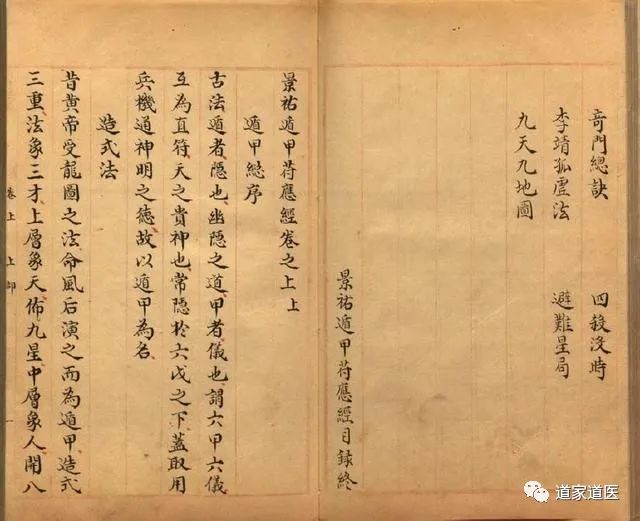 奇門總訣 四投沒時
李靖孤虛法 避難星局
九天九地圖
景祐遁甲苻應經目録終
景祐遁甲苻應經卷之上上
遁甲總序
古法遁者隱也幽隱之道甲者儀也謂六甲六儀
互為直符天之貴神也常隱於六戊之下蓋取用
兵機通神明之德故以遁甲為名
造式法
昔黄帝受龍圖之法命風后演之而為遁甲造式
三重法象三才上層象天佈九星中層象人開八
卷上 上部 一
道家道医